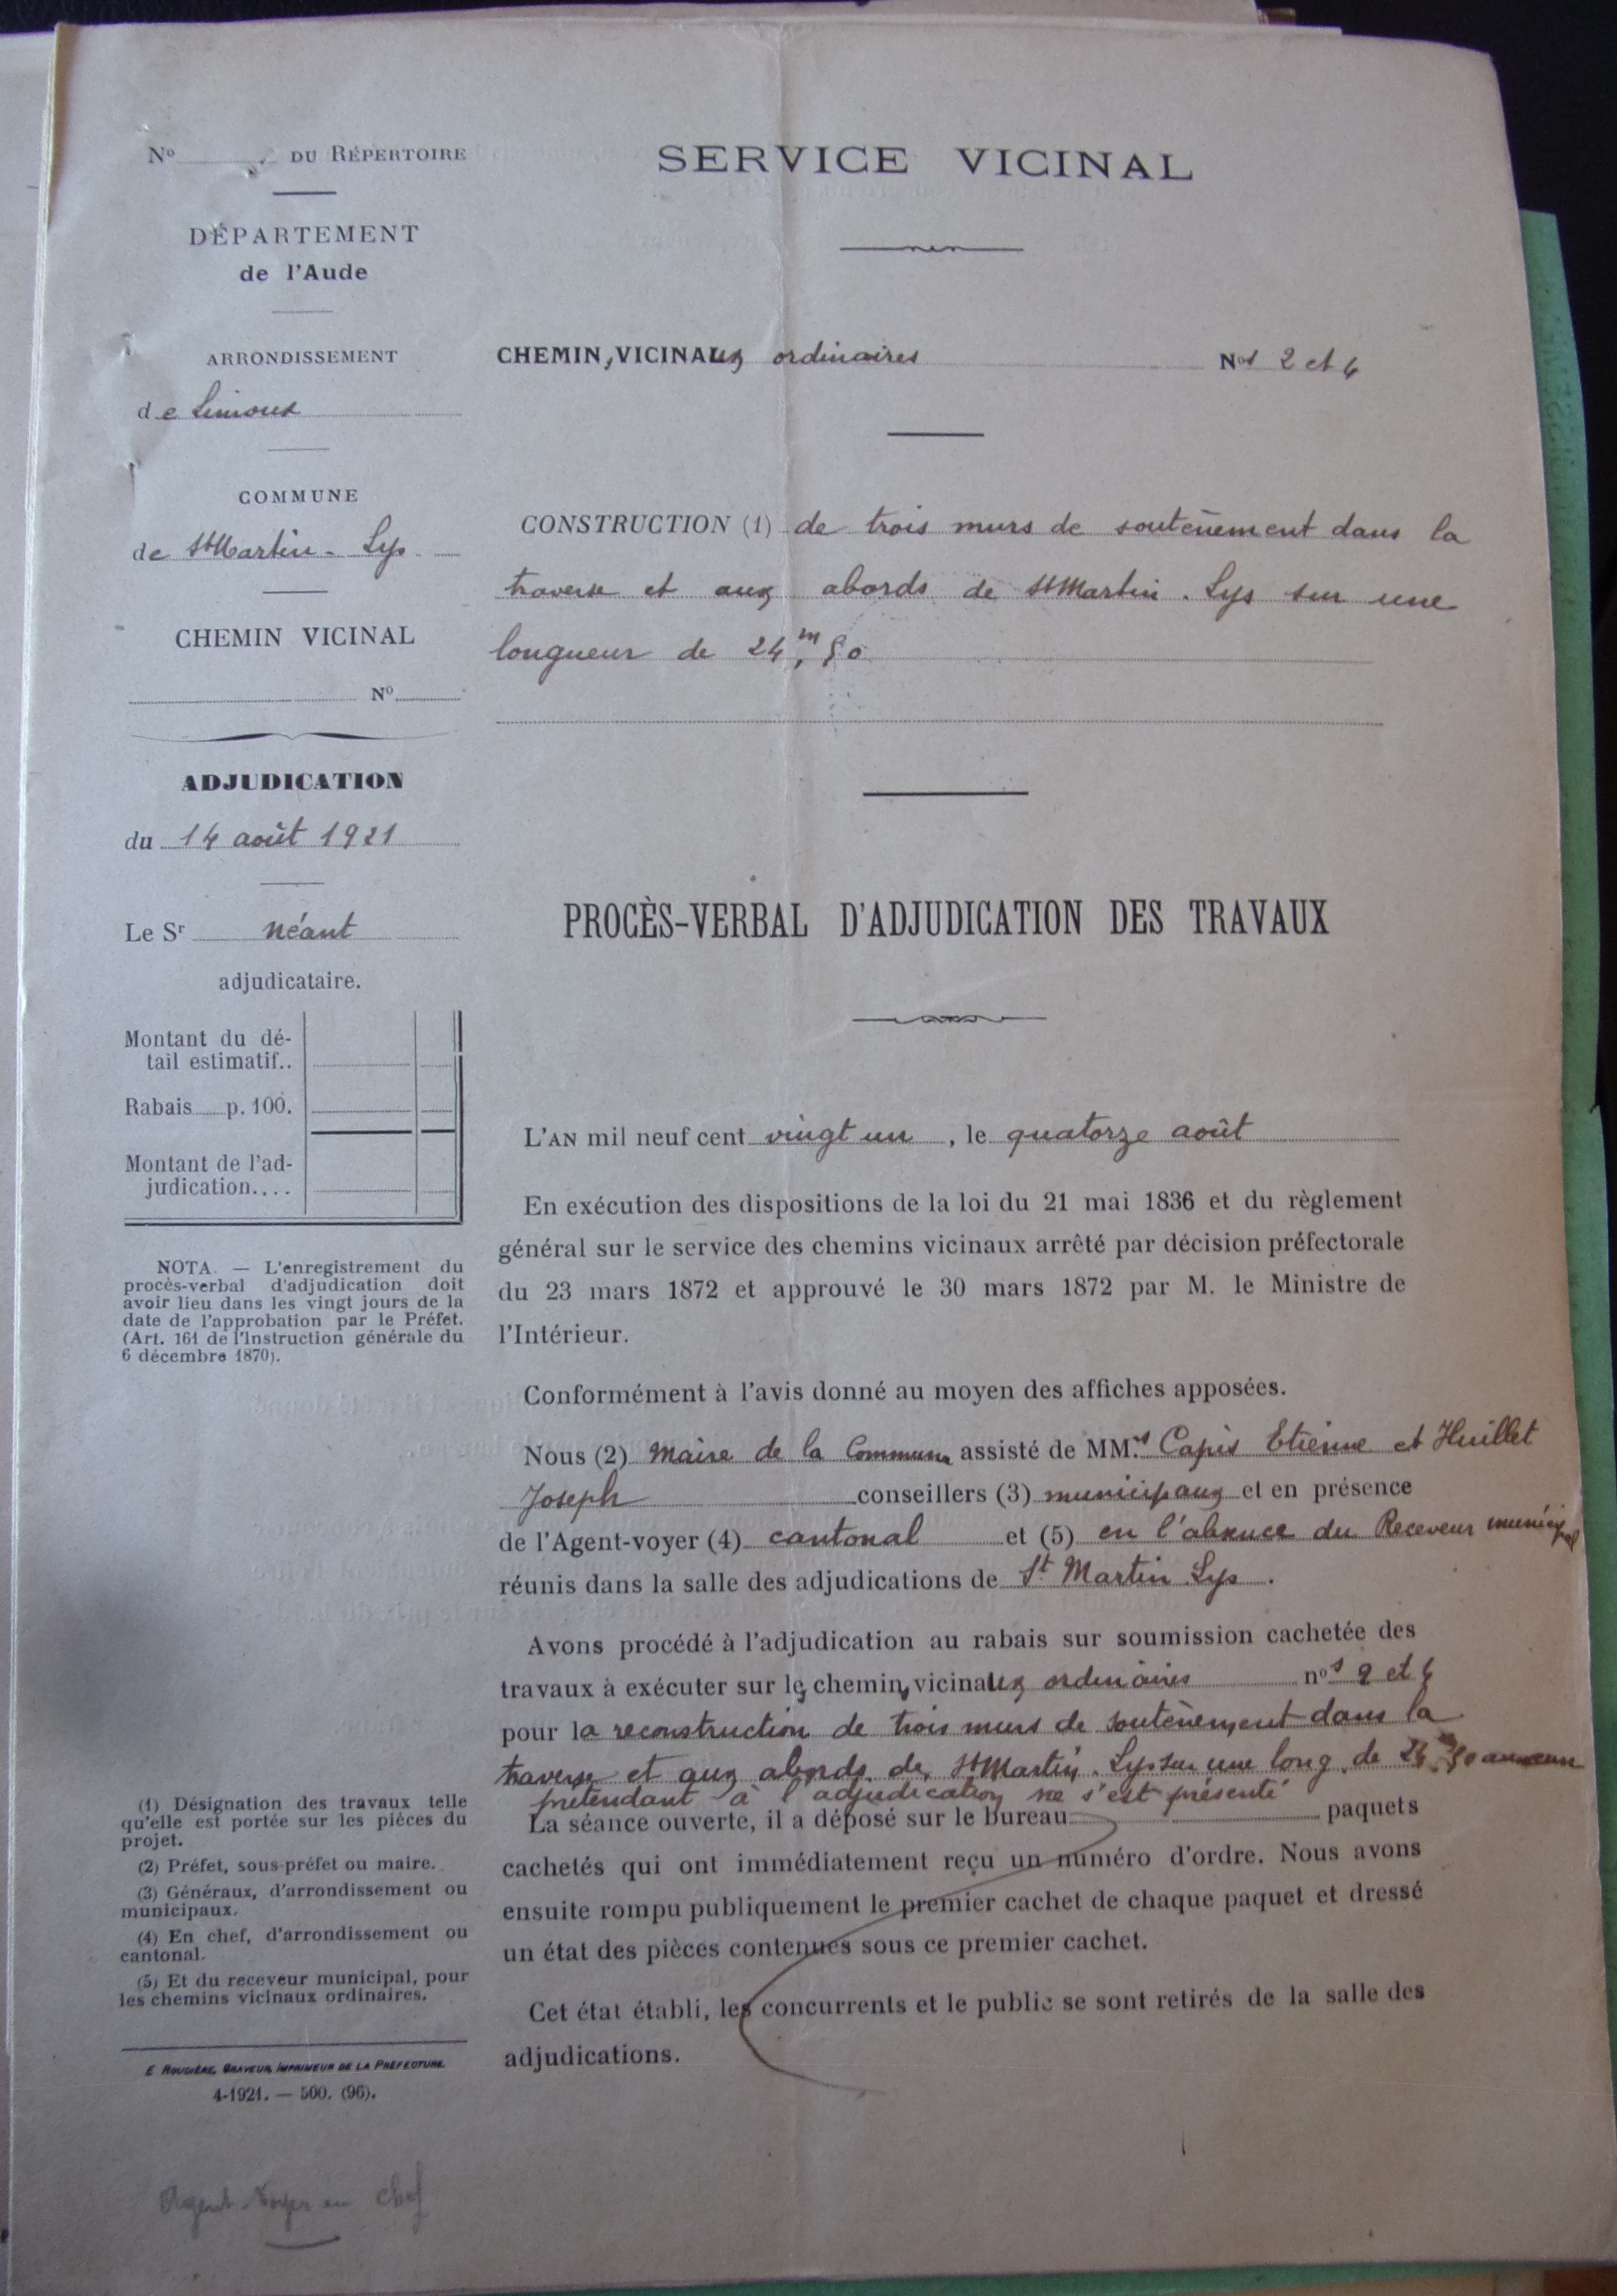 N° DU RÉPERTOIRE
DÉPARTEMENT
de l'Aude
ARRONDISSEMENT
de Limoux
COMMUNE
de St Martin-Lys
CHEMIN VICINAL
N°
ADJUDICATION
du 14 août 1921
Le Sr néant
adjudicataire.
Montant du dé-
tail estimatif..
Rabais p. 100.
Montant de l'ad-
judication....
NOTA. — L'enregistrement du
procès-verbal d'adjudication doit
avoir lieu dans les vingt jours de la
date de l'approbation par le Préfet.
(Art. 161 de l'Instruction générale du
6 décembre 1870).
(1) Désignation des travaux telle
qu'elle est portée sur les pièces du
projet.
(2) Préfet, sous-préfet ou maire.
(3) Généraux, d'arrondissement ou
municipaux.
(4) En chef, d'arrondissement ou
cantonal.
(5) Et du receveur municipal, pour
les chemins vicinaux ordinaires.
E. ROUDIÈRE, GRAVEUR IMPRIMEUR DE LA PRÉFECTURE.
4-1921. — 500. (96).
Agent-Voyer en chef
SERVICE VICINAL
CHEMINs VICINAUx ordinaires Nos 2 et 4
CONSTRUCTION (1) de trois murs de soutènement dans la
traverse et aux abords de St Martin-Lys sur une
longueur de 24m,50
PROCÈS-VERBAL D'ADJUDICATION DES TRAVAUX
L'AN mil neuf cent vingt un, le quatorze août
En exécution des dispositions de la loi du 21 mai 1836 et du règlement
général sur le service des chemins vicinaux arrêté par décision préfectorale
du 23 mars 1872 et approuvé le 30 mars 1872 par M. le Ministre de
l'Intérieur.
Conformément à l'avis donné au moyen des affiches apposées.
Nous (2) Maire de la Commune assisté de MM.rs Capis Etienne et Huillet
Joseph conseillers (3) municipaux et en présence
de l'Agent-voyer (4) cantonal et (5) en l'absence du Receveur municipal
réunis dans la salle des adjudications de St Martin Lys.
Avons procédé à l'adjudication au rabais sur soumission cachetée des
travaux à exécuter sur les chemins vicinaux ordinaires nos 2 et 4
pour la reconstruction de trois murs de soutènement dans la
traverse et aux abords de St Martin-Lys sur une long. de 24m,50 aucun
prétendant à l'adjudication ne s'est présenté
La séance ouverte, il a déposé sur le bureau paquets
cachetés qui ont immédiatement reçu un numéro d'ordre. Nous avons
ensuite rompu publiquement le premier cachet de chaque paquet et dressé
un état des pièces contenues sous ce premier cachet.
Cet état établi, les concurrents et le public se sont retirés de la salle des
adjudications.